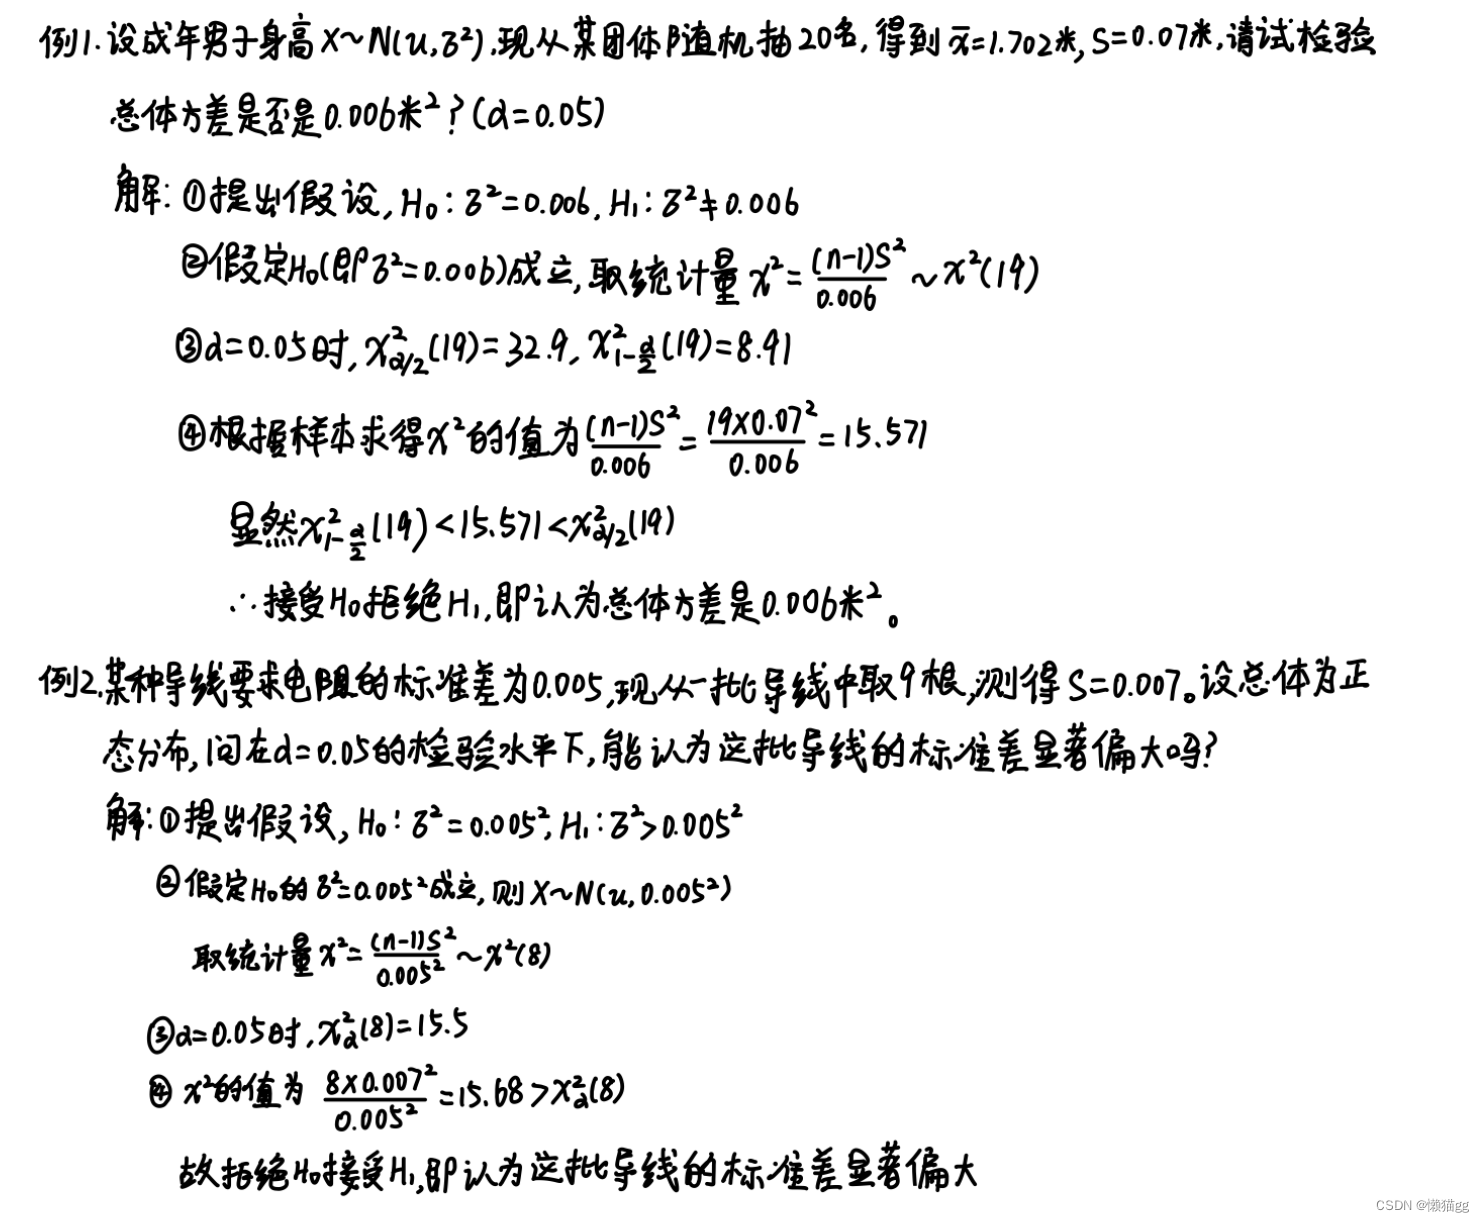 例1.设成年男子身高X~N(u,σ²),现从某团体中随机抽20名,得到x̄=1.702米,S=0.07米,请试检验
总体方差是否是0.006米²?(α=0.05)
解:①提出假设,H₀:σ²=0.006,H₁:σ²≠0.006
②假定H₀(即σ²=0.006)成立,取统计量x²=(n-1)S²/0.006~x²(19)
③α=0.05时,x²α/2(19)=32.9,x²1-α/2(19)=8.91
④根据样本求得x²的值为(n-1)S²/0.006=19×0.07²/0.006=15.571
显然x²1-α/2(19)<15.571<x²α/2(19)
∴接受H₀拒绝H₁,即认为总体方差是0.006米²。
例2.某种导线要求电阻的标准差为0.005,现从一批导线中取9根,测得S=0.007。设总体为正
态分布,问在α=0.05的检验水平下,能认为这批导线的标准差显著偏大吗?
解:①提出假设,H₀:σ²=0.005²,H₁:σ²>0.005²
②假定H₀的σ²=0.005²成立,则X~N(u,0.005²)
取统计量x²=(n-1)S²/0.005²~x²(8)
③α=0.05时,x²α(8)=15.5
④x²的值为 8×0.007²/0.005²=15.68>x²α(8)
故拒绝H₀接受H₁,即认为这批导线的标准差显著偏大
CSDN @懒猫gg